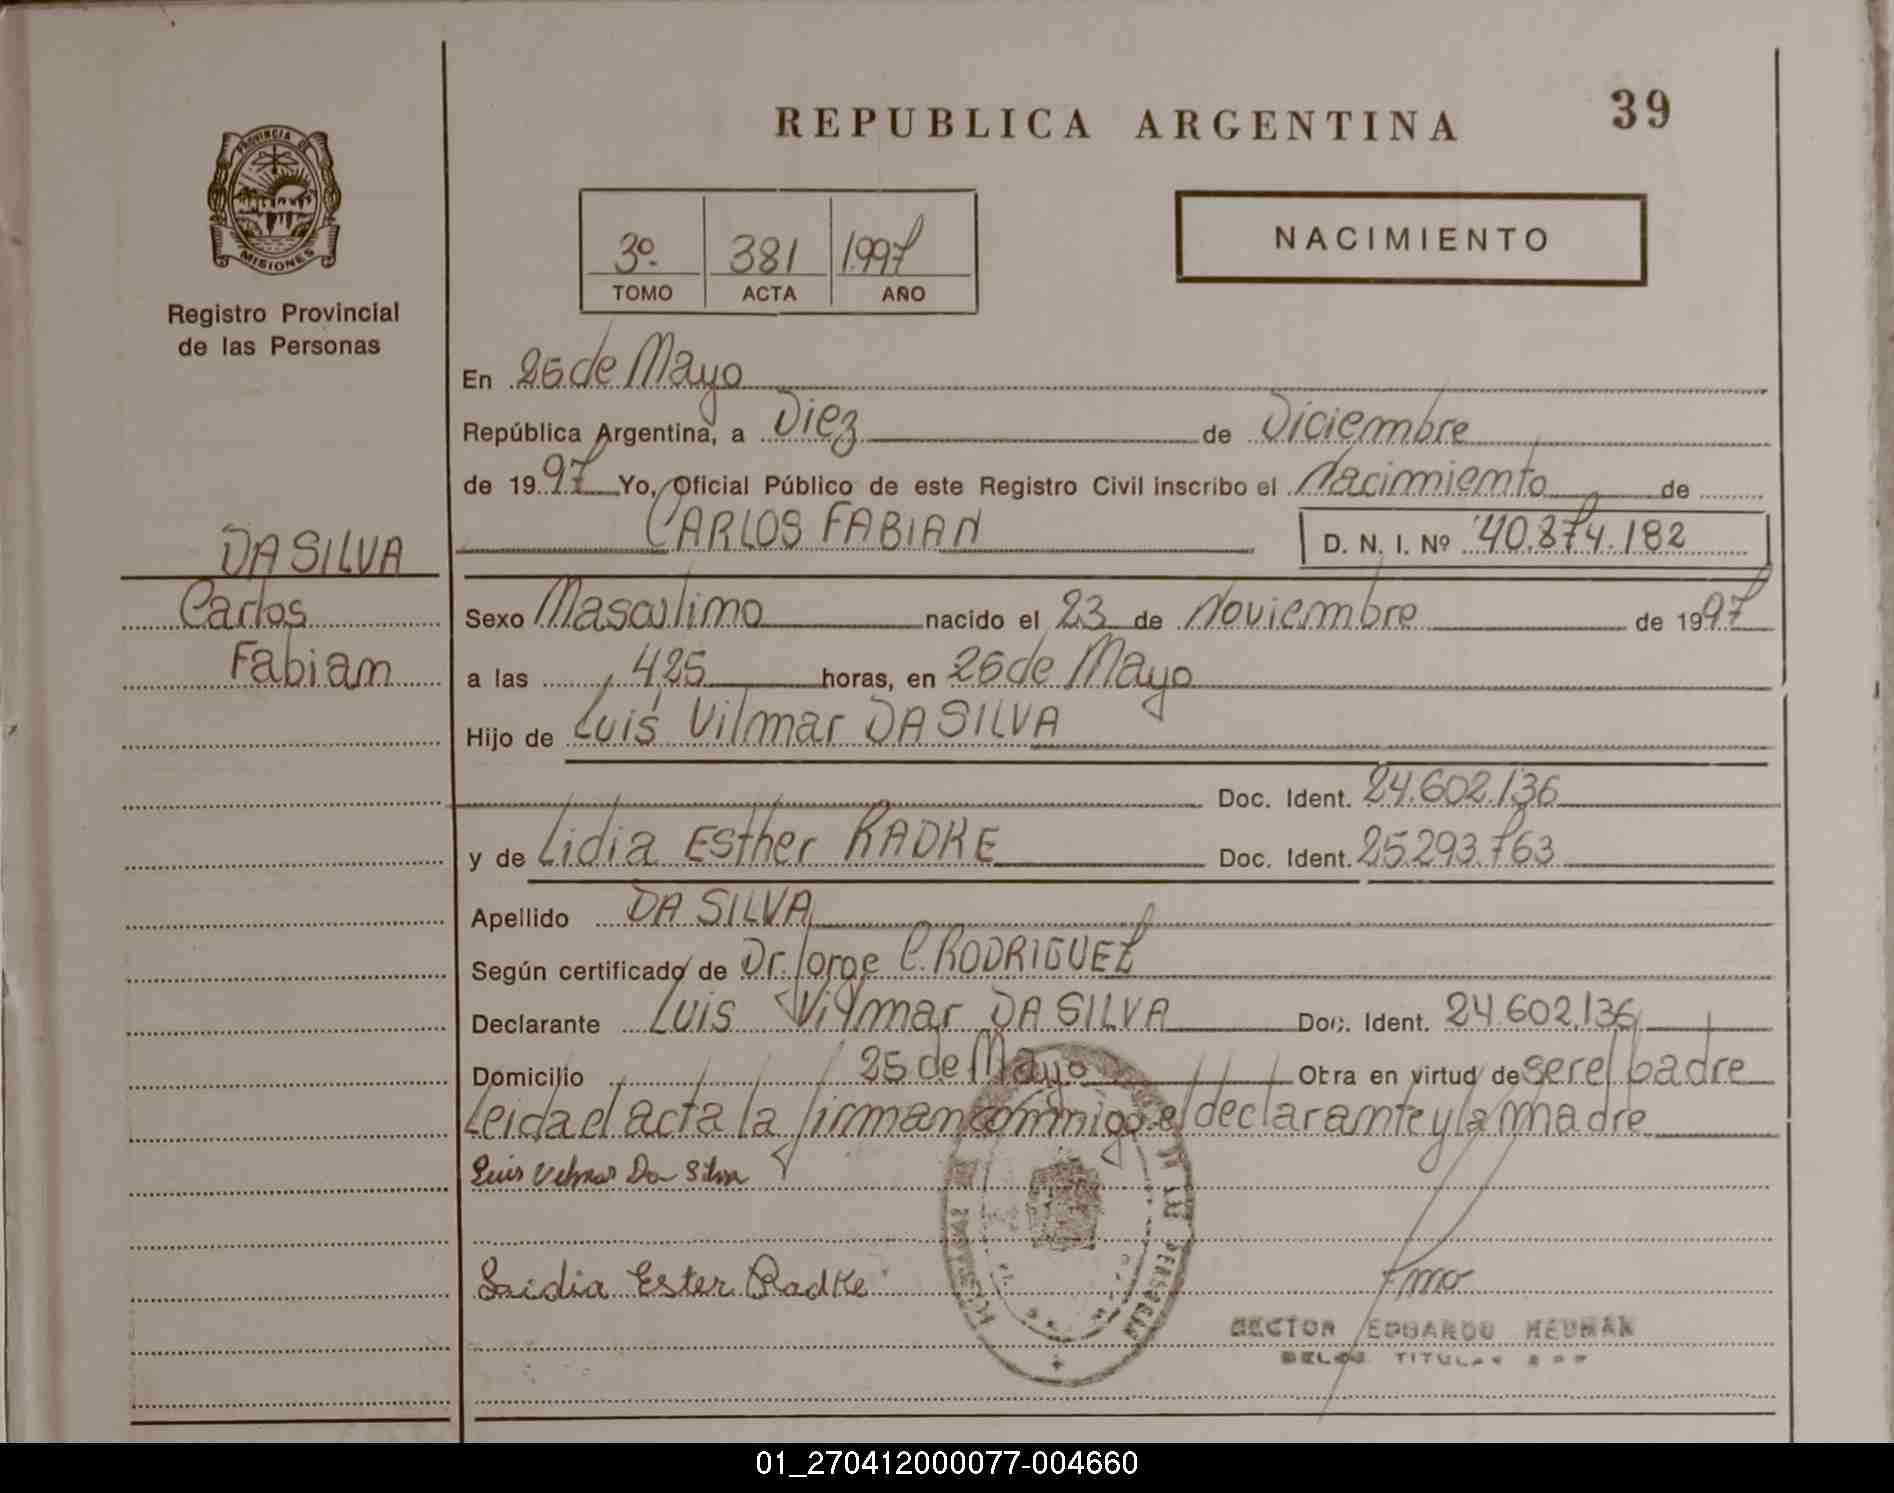 REPUBLICA ARGENTINA
39
PROVINCIA DE
MISIONES
Registro Provincial
de las Personas
3º. 381 1.997
TOMO ACTA AÑO
NACIMIENTO
En 25 de Mayo
República Argentina, a Diez de Diciembre
de 1997 Yo, Oficial Público de este Registro Civil inscribo el Nacimiento de
CARLOS FABIAN D. N. I. Nº 40.874.182
DA SILVA
Carlos
Fabian
Sexo Masculino nacido el 23 de Noviembre de 1997
a las 4,25 horas, en 25 de Mayo
Hijo de Luis Vilmar DA SILVA
Doc. Ident. 24.602.136
y de Lidia Esther RADKE Doc. Ident. 25.293.763
Apellido DA SILVA
Según certificado de Dr. Jorge C. RODRIGUEZ
Declarante Luis Vilmar DA SILVA Doc. Ident. 24.602.136
Domicilio 25 de Mayo Obra en virtud de ser el padre
Leida el acta la firman conmigo el declarante y la madre
Luis Da Silva
Lidia Ester Radke
HECTOR EDUARDO NEUMAN
TITULAR
01_270412000077-004660